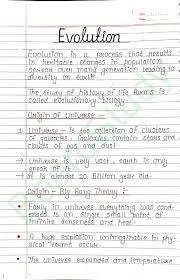 Evolution
Evolution is a process that results
in heritable changes in population
spread over many generation leading to
diversity on earth.
The study of history of life forms is
called evolutionary biology.
Origin of Universe -
Universe - is the collection of clusters
of galaxies. Galaxies contain stars and
clouds of gas and dust
→ Universe is very vast. earth is only
speck of it
→ It is almost 20 Billion year old.
Origin - Big Bang Theory :-
Early in universe everything was cond-
ensed in an single small point of
infinite denseness and heat.
A huge explosion unimaginable in phy-
sical terms occur.
The universe expanded and temperature